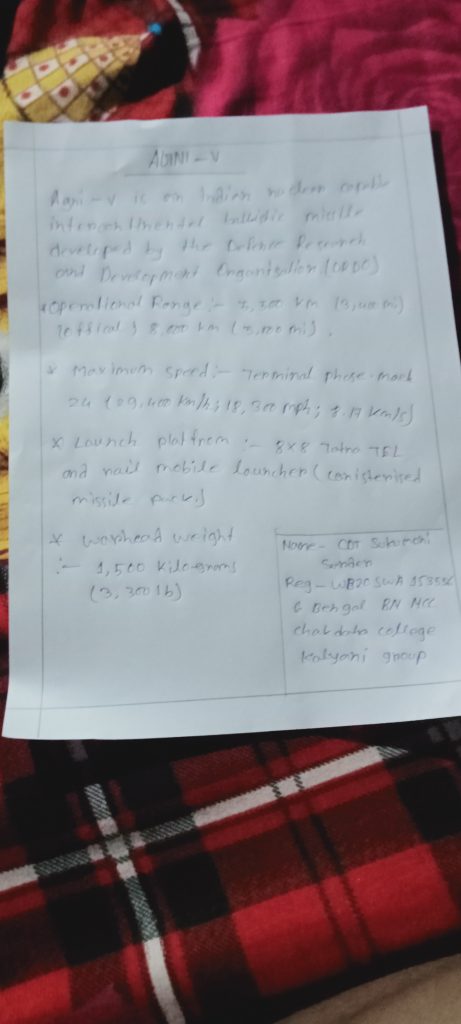 AGINI - V
Agni - v is an Indian nuclear capable
intercontinental ballistic missile
developed by the Defence Research
and Development Organisation (DRDO)
Operational Range :-
8,000 km
* Maximum speed :- Terminal phase mach
24
* Launch platfrom :- 8x8 Tatra TEL
and rail mobile launcher (canisterised
missile pack)
* Warhead weight
:- 1,500 kilograms
(3,300 lb)
Name - CDT
Reg - WB20SWA
6 Bengal BN NCC
college
kalyani group